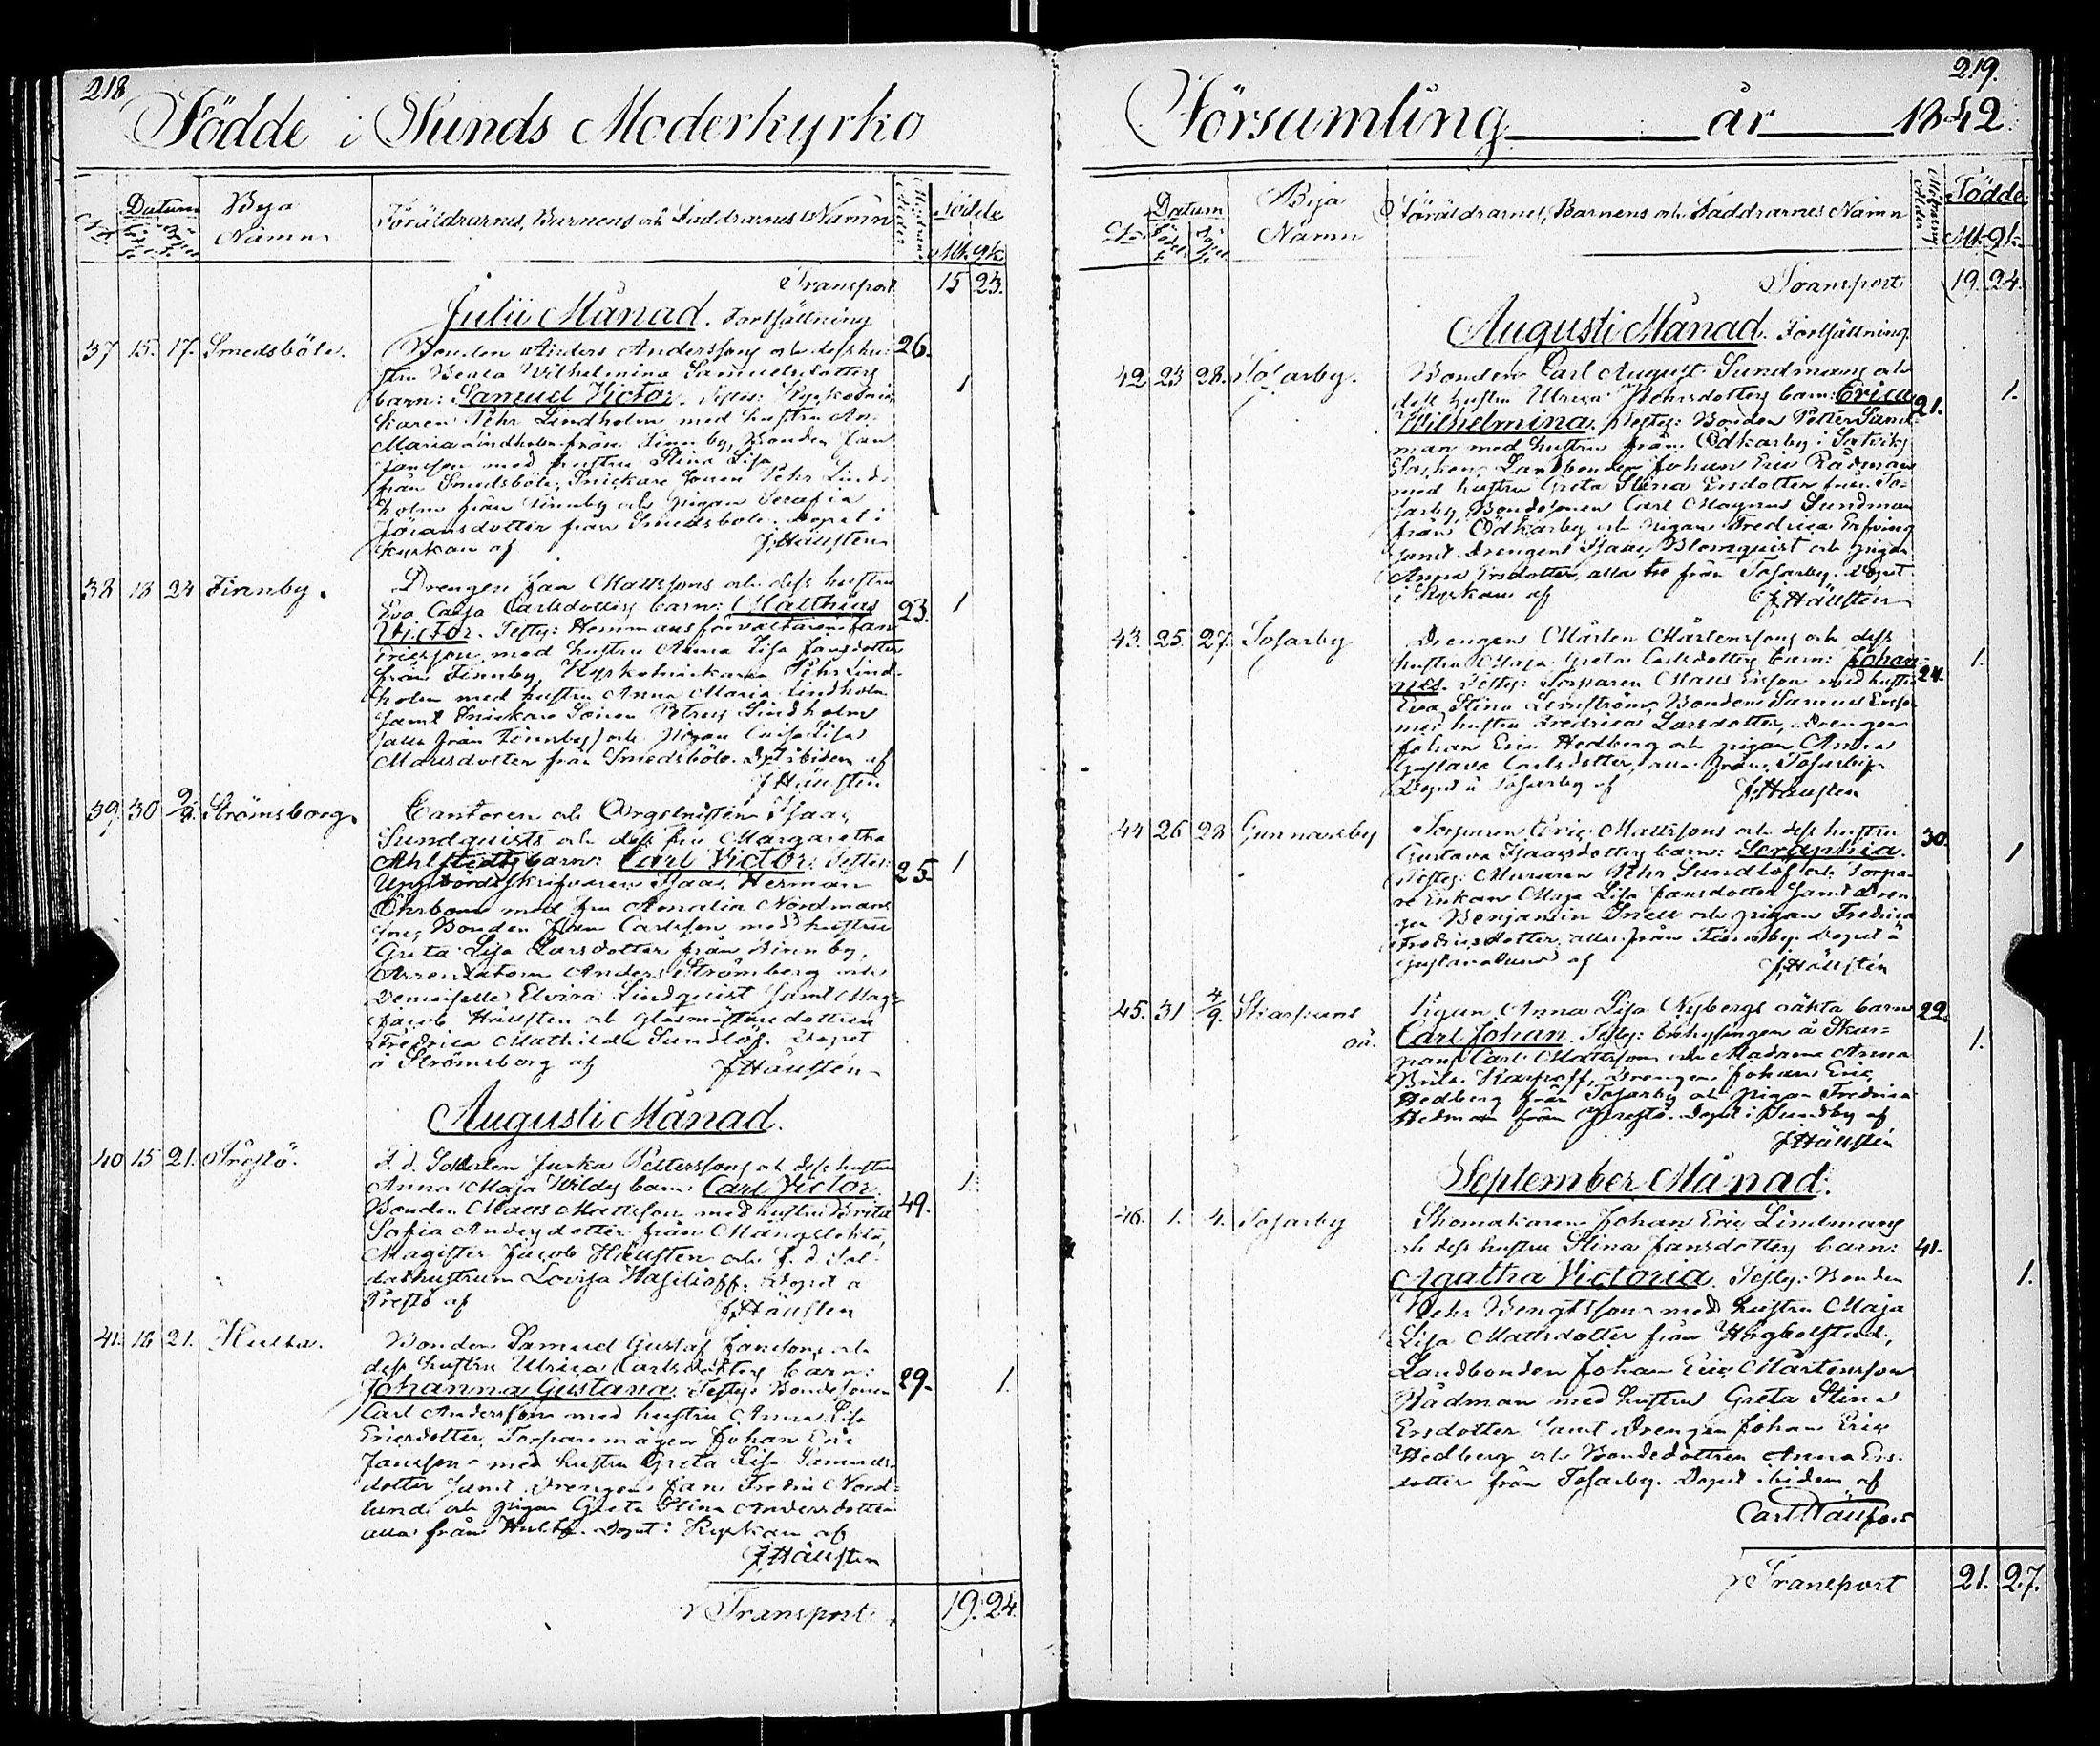 218
Födde i Sunds Moderkyrko
No Datum Bya Namn Föräldrarnes, Barnens och Faddrarnes Namn Födde
Mk. Qk.
Transport 15 23.
Julii Månad. Fortsättning
37 15. 17. Smedsböle. Bonden Anders Anderssons och dess hu- 26.
stru Beata Wilhelmina Samuelsdotters
barn: Samuel Victor. Testes: Kyrkosnic- 1
karen Pehr Lindholm med hustru An.
Maria Lindholm från Finnby, Bonden Jan
Jansson med hustru Stina Lisa
från Smedsböle, Snickare Sonen Pehr Lind-
holm från Finnby och pigan Serafia
Jöransdotter från Smedsböle. Döpt i
Kyrkan af J. Hällsten
38 18 24 Finnby. Drengen Jan Mattssons och dess hustru
Eva Cajsa Carlsdotters barn: Matthias 23. 1
Victor. Testes: Hemmansförvaltaren Jan
Ericsson med hustru Anna Lisa Jansdotter
från Finnby, Kyrkosnickaren Pehr Lind-
holm med hustru Anna Maria Lindholm
samt Snickare Sonen Petrus Lindholm
(alla från Finnby) och pigan Cajsa Lisa
Mattsdotter från Smedsböle. Döpt ibidem af
J. Hällsten
39. 30 Strömsborg. Cantoren och Orgelnisten Isaac
Sundquists och dess fru Margaretha
Ahlstedts barn: Carl Victor. Testes: 25. 1
Uppbördsskrifvaren Isaac Herman
Öhrbom med fru Amalia Nordmans
son, Bonden Jan Carlsson med hustru
Greta Lisa Larsdotter från Finnby,
Arrendatorn Anders Strömberg och
Demoiselle Elvira Lindquist samt Mag:
Jacob Hällsten och Glasmästaredottren
Fredrica Mathilda Sundlöf. Döpt
å Strömsborg af J. Hällsten
Augusti Månad.
40 15 21. Prestö. F. d. Soldaten Jurka Petterssons och dess hustru
Anna Maja Wildes barn: Carl Victor. 1.
Bonden Matts Mattsson med hustru Brita 49.
Sofia Andersdotter från Mångstekta,
Magister Jacob Hällsten och f. d. Sol-
dathustrun Lovisa Wasilioff. Döpt å
Prestö af J. Hällsten
41. 18 21. Hulta. Bonden Samuel Gustaf Janssons och
dess hustru Ulrica Carlsdotters barn:
Johanna Gustava. Testes: Bondesonen 29. 1.
Carl Andersson med hustru Anna Lisa
Ericsdotter, Torparemågen Johan Eric
Jansson med hustru Greta Lisa Samuels-
dotter samt Drengen Jan Fredric Nord-
lund och pigan Greta Stina Andersdotter
alla från Hulta. Döpt i Kyrkan af
J. Hällsten
Transport 19. 24.
219.
Församling år 1842.
No Datum Bya Namn Föräldrarnes, Barnens och Faddrarnes Namn Födde
Mk. Qk.
Transport 19. 24.
Augusti Månad. Fortsättning.
42 23 28. Tosarby. Bonden Carl August Sundmans och
dess hustru Ulrica Pehrsdotters barn: Erica 21. 1.
Wilhelmina. Testes: Bonden Petter Sund-
man med hustru från Ödkarby i Saltviks
Socken, Landbonden Johan Eric Rådman
med hustru Greta Stina Ersdotter från To-
sarby, Bondesonen Carl Magnus Sundman
från Ödkarby och pigan Fredrica Erfving
samt Drengen Isaac Blomquist och pigan
Anna Ersdotter, alla tre från Tosarby. Döpt
i Kyrkan af J. Hällstén
43. 25. 27. Tosarby Drengen Mårten Mårtenssons och dess
hustru Maja Greta Carlsdotters barn: Johan- 1.
nes. Testes: Torparen Matts Ersson med hustru 24.
Eva Stina Lönström, Bonden Samuel Ersson
med hustru Fredrica Larsdotter, Drengen
Johan Eric Hedberg och pigan Anna
Gustava Carlsdotter, alla från Tosarby.
Döpt i Tosarby af J. Hällsten
44 26 28 Gunnarsby Torparen Eric Mattssons och dess hustru 30.
Gustava Isaacsdotters barn: Seraphia. 1
Testes: Muraren Pehr Sundlöf och Torpa-
re Enkan Maja Lisa Jansdotter samt Dren-
gen Benjamin Snell och pigan Fredrica
Fredricsdotter, alla från Finnby. Döpt å
Gustavalund af J. Hällstén
45. 31 4/9. Skarpans Pigan Anna Lisa Nybergs oäkta barn 22.
oä. Carl Johan. Testes: Inhysingen å Skar- 1.
pans Carl Mattsson och Madame Anna
Brita Karpoff, Drengen Johan Eric
Hedberg från Tosarby och pigan Fredrica
Hedman från Prestö. Döpt i Sundby af
J. Hällstén
September Månad.
46. 1. 4. Tosarby Skomakaren Johan Eric Lindmans
och dess hustru Stina Jansdotters barn: 41.
Agatha Victoria. Testes: Bonden 1.
Pehr Bengtsson med hustru Maja
Lisa Mattsdotter från Högbolstad,
Landbonden Johan Eric Mårtensson
Rådman med hustru Greta Stina
Ersdotter samt Drengen Johan Eric
Hedberg och Bondedottren Anna Ers-
dotter från Tosarby. Döpt ibidem af
Transport 21. 27.